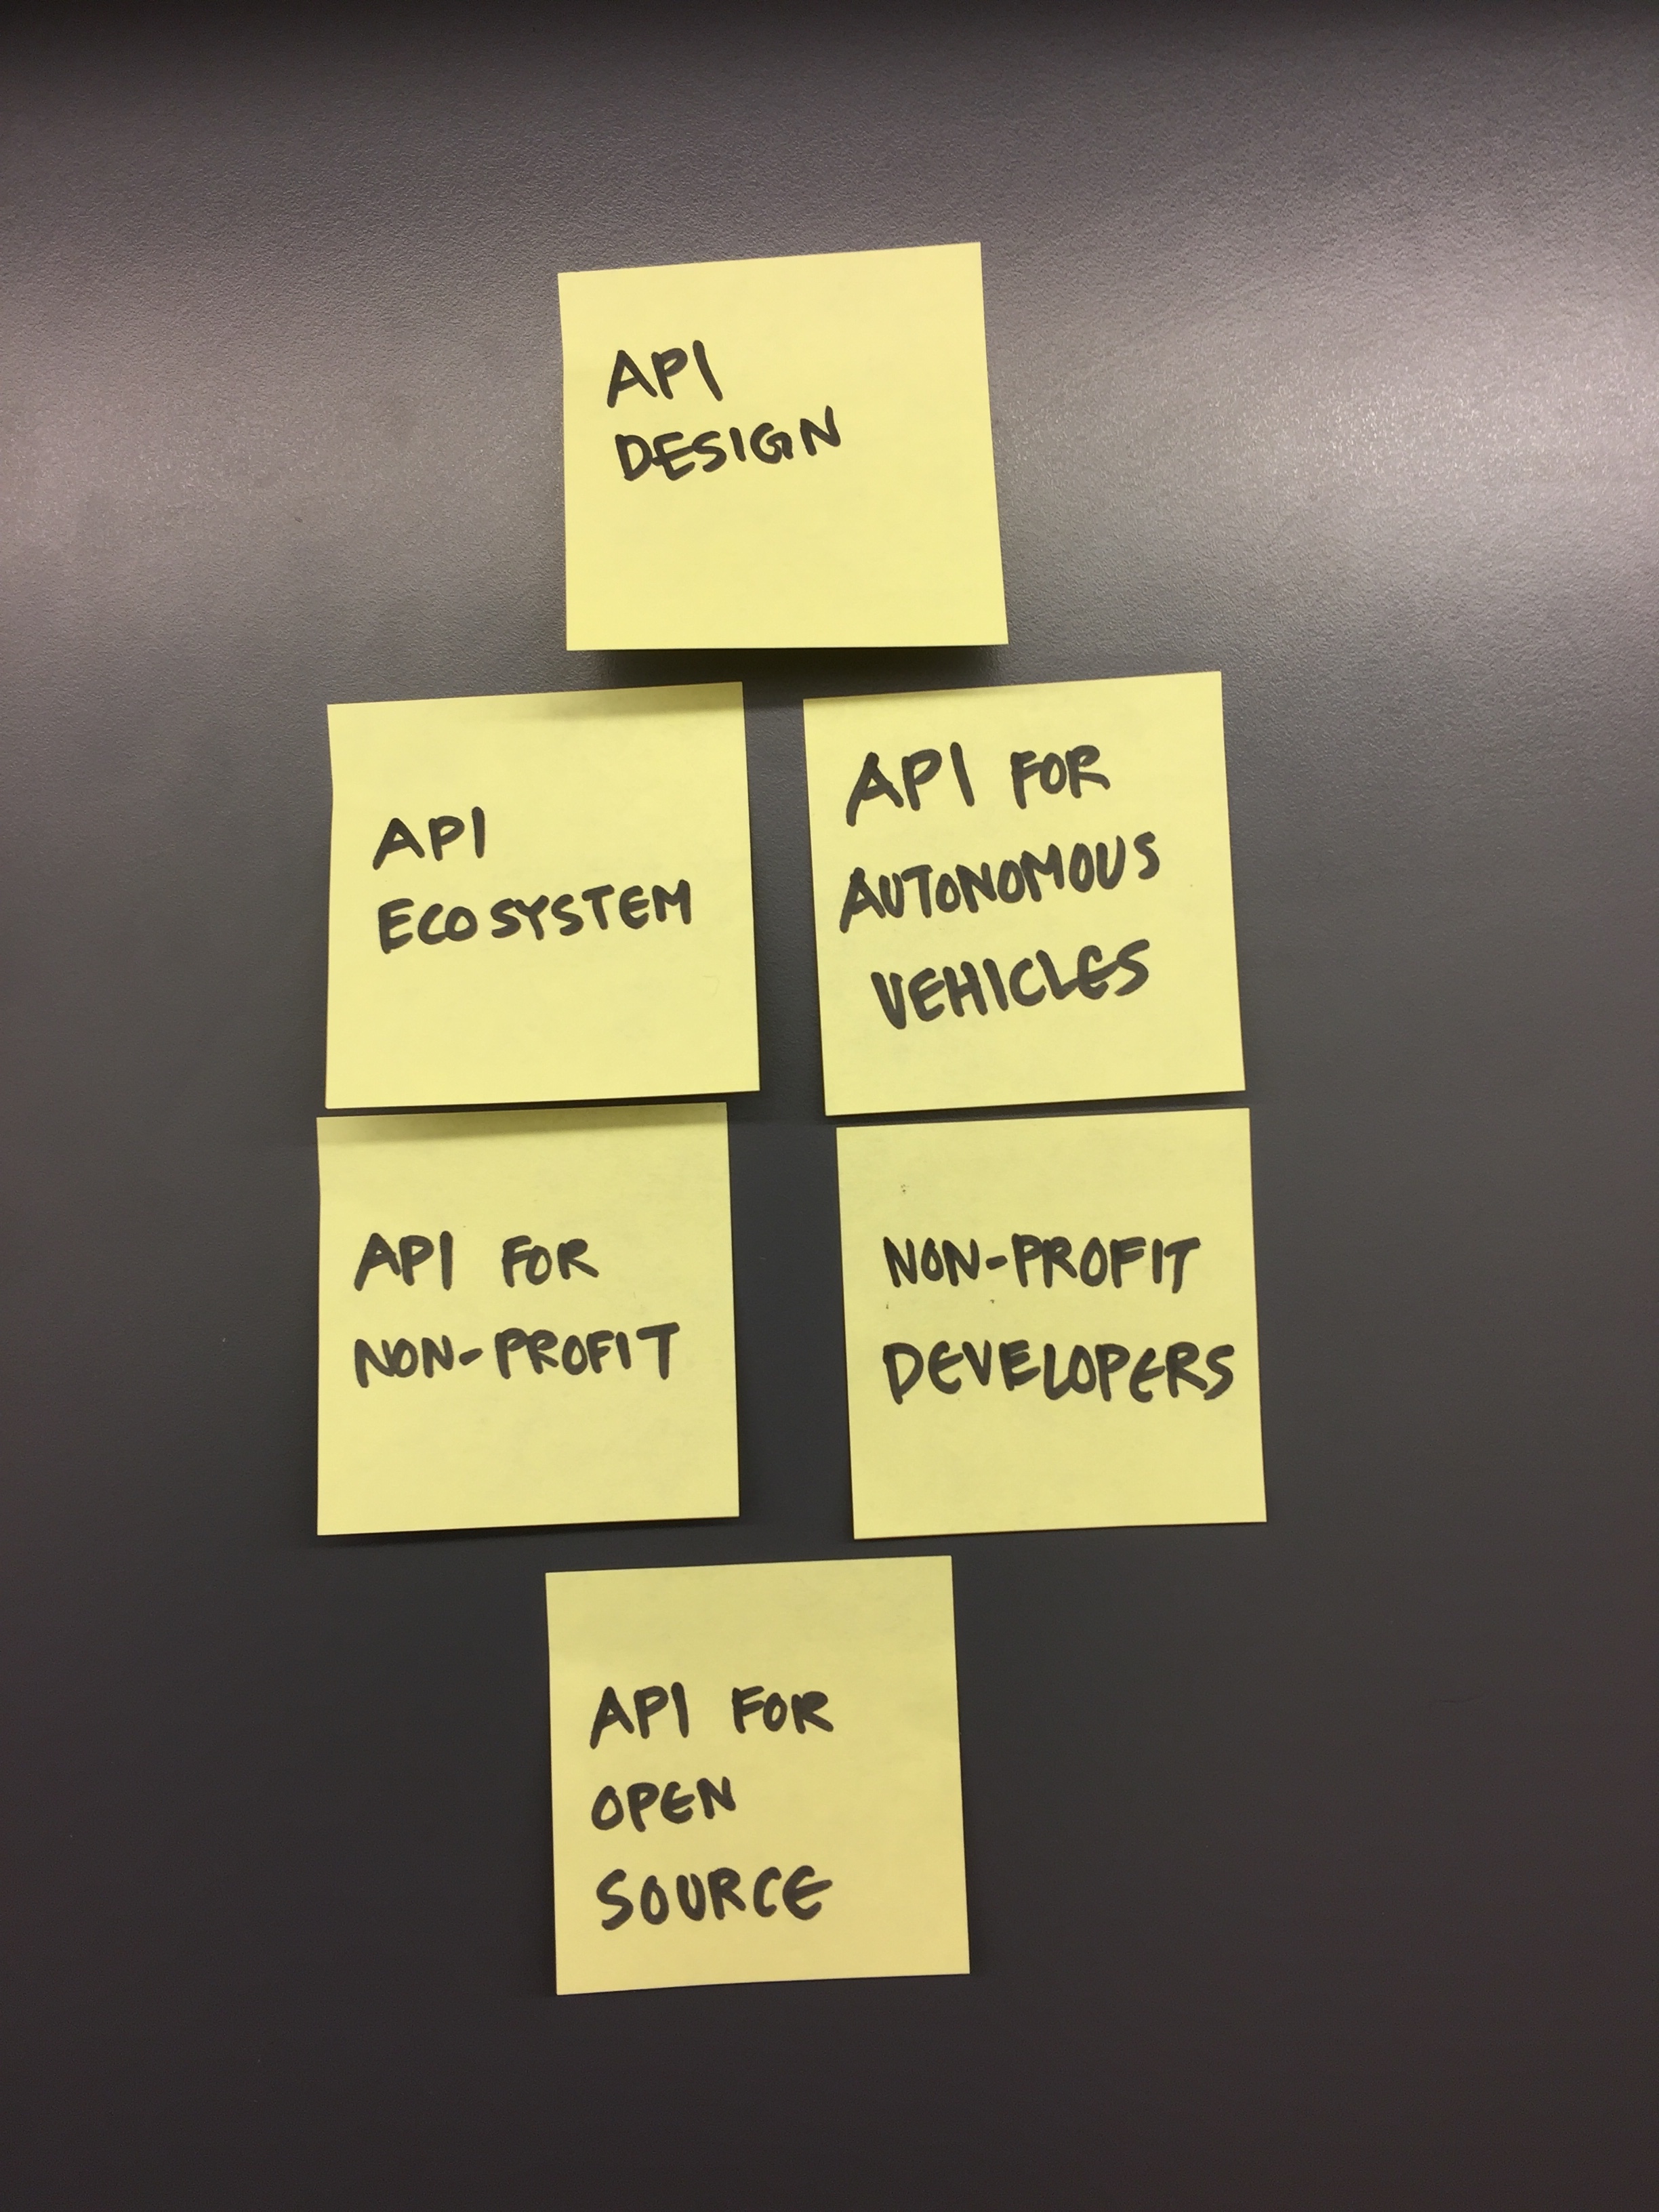 API
DESIGN
API
ECOSYSTEM
API FOR
AUTONOMOUS
VEHICLES
API FOR
NON-PROFIT
NON-PROFIT
DEVELOPERS
API FOR
OPEN
SOURCE